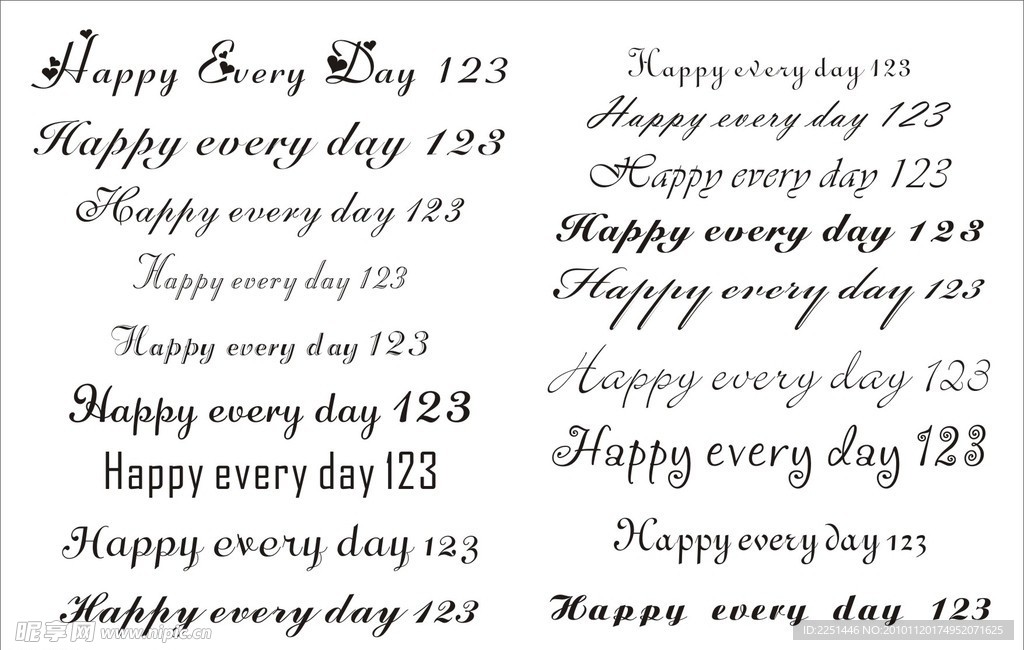 Happy Every Day 123
Happy every day 123
Happy every day 123
Happy every day 123
Happy every day 123
Happy every day 123
Happy every day 123
Happy every day 123
Happy every day 123
昵享网 www.nipic.cn
Happy every day 123
Happy every day 123
Happy every day 123
Happy every day 123
Happy every day 123
Happy every day 123
Happy every day 123
Happy every day 123
Happy every day 123
ID:2251446 NO:20101120174952071625